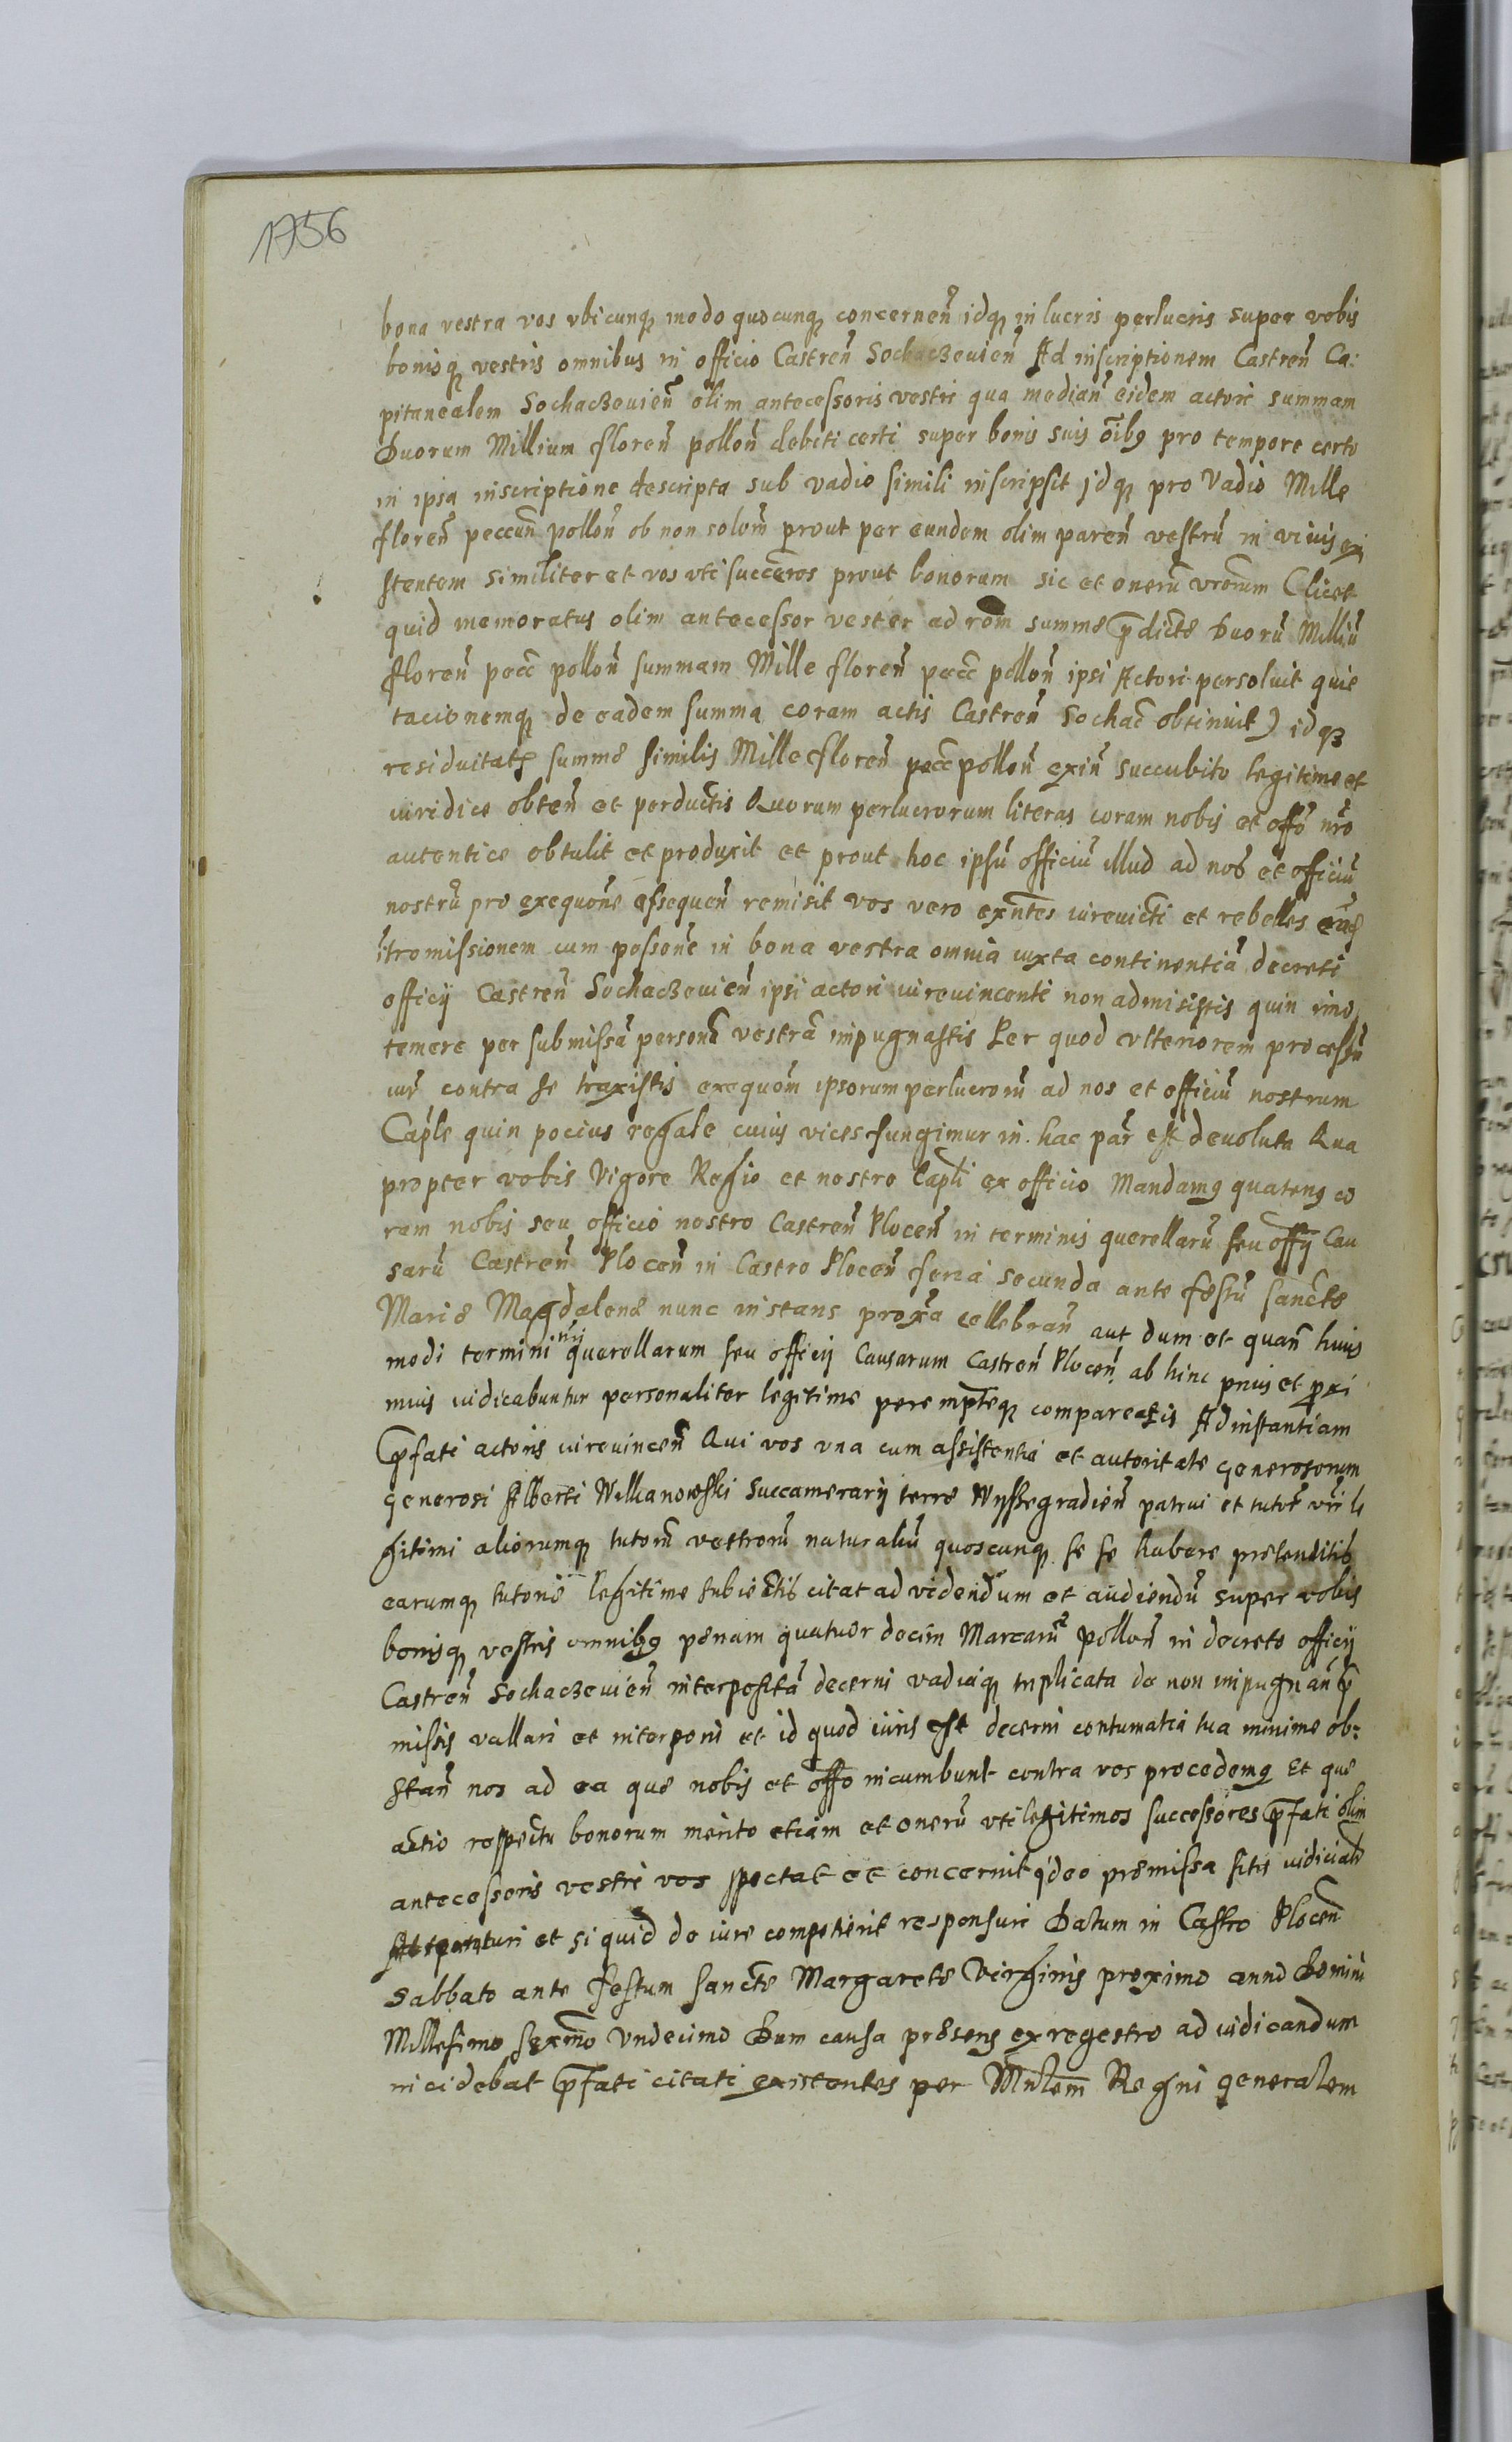 1756
bona vestra vos vbicunq, modo quocunq, concernen̄ idq, in lucris perlucris super vobis
bonisq, vestris omnibus in officio Castren̄ Sochaczeuien̄ Ad inscriptionem Castren̄ Ca:
pitanealem Sochaczeuien̄ olim antecessoris vestri qua median̄ eidem actori summam
Duorum Millium floren̄ pollon̄ debiti certi super bonis suis oībꝯ pro tempore certo
in ipsa inscriptione descripta sub vadio simili inscripsit jdq, pro Vadio Mille
floren̄ peccun̄ pollon̄ ob non solūm prout per eundem olim paren̄ vestrū in viuis exi
stentem similiter et vos vti succēros prout bonorum sic et onerū vrōrum (licet
quid memoratus olim antecessor vester ad rōm summe p̄dictē Duorū Milliū
floren̄ pecc̄ pollon̄ summam Mille floren̄ pecc̄ pollon̄ ipsi Actori persoluit quie
tacionemq, de eadem summa coram actis Castren̄ Sochac̄ obtinuit) idqꝫ
residuitatꝭ summe similis Mille floren̄ pecc̄ pollon̄ exin̄ succubito legitime et
iuridice obten̄ et perductis Quorum perlucrorum literas coram nobis et offō nrō
autentice obtulit et produxit et prout hoc ipsū officiū illud ad nos et officiū
nostrū pro exequōne assequen̄ remisit vos vero exn̄tes iureuicti et rebelles
ītromissionem cum possōne in bona vestra omnia iuxta continentiā decreti
officij Castren̄ Sochaczeuien̄ ipsi actori iureuincenti non admisistis quin imo
temere per submissā personā vestrā impugnastis Per quod vlteriorem processū
iur̄ contra se traxistis exequōm ipsorum perlucrorū ad nos et officiū nostrum
Capl̄e quin pocius regale cuius vices fungimur in hac par̄ est deuoluta Qua
propter vobis Vigore Regio et nostro Capl̄i ex officio Mandamꝯ quatenꝯ co
ram nobis seu officio nostro Castren̄ Plocen̄ in terminis querellarū seu offij Cau
sarū Castren̄ Plocen̄ in Castro Plocen̄ feria secunda ante festū sanctē
Marie Magdalene nunc instans proxīa cellebran̄ aut dum et quan̄ huius
modi termini querellarum seu officij Causarum Castren̄ Plocen̄ ab hinc prius et proxi
mius iudicabuntur personaliter legitime peremptēq, compareatis Ad instantiam
p̄fati actoris iureuincen̄ Qui vos vna cum assistentia et autoritate generosorum
generosi Alberti Wilkanowski Succamerarij terre Wyssegradien̄ patrui et tutor̄ vrī le
gitimi aliorumq, tutorū vestrorū naturaliū quoscunq, se se habere pretenditis
earumq, tutorie legitime subiectis citat ad videndum et audiendū super vobis
bonisq, vestris omnibꝯ penam quatuor decim Marcarū pollon̄ in decreto officij
Castren̄ Sochaczeuien̄ interpositā decerni vadiaq, triplicata de non impugnan̄ p̄
missis vallari et interponi et id quod iuris est decerni contumatia tua minime ob:
stan̄ nos ad ea que nobis et offō incumbunt contra vos procedemꝯ Et que
actio respectu bonorum merito etiam et onerū vti legitimos successores p̄fati olim
antecessoris vestri vos spectat et concernit jdeo premissa sitis iudicialr̄
et si quid de iure competierit responsuri Datum in Castro Plocen̄
Sabbato ante festum Sanctē Margarete Virginis proximo anno Domini
Millesimo sexmō Vndecimo Dum causa presens ex regestro ad iudicandum
incidebat p̄fati citati existentes per Mnl̄em Regni generalem